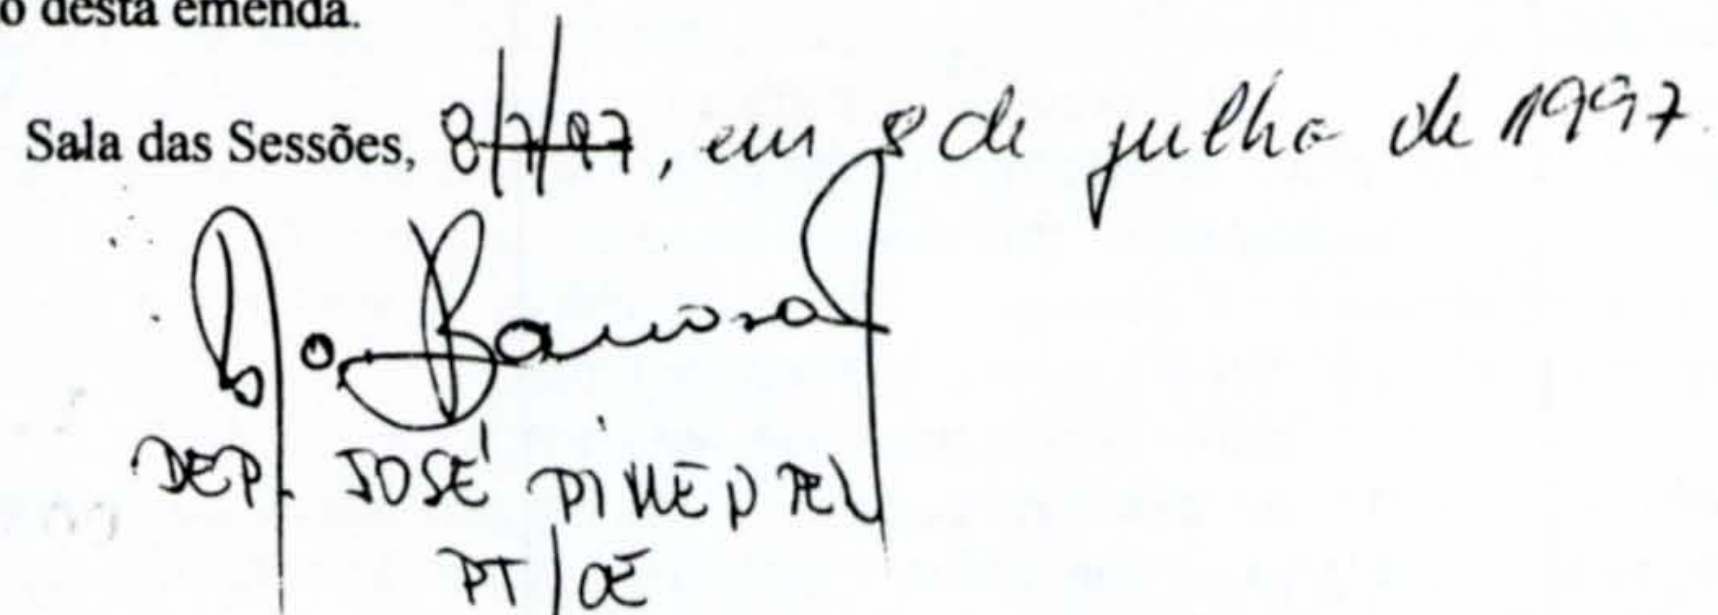 o desta emenda.
Sala das Sessões, 8/7/97, em 8 de julho de 1997.
DEP. JOSÉ PIMENTEL
PT/CE